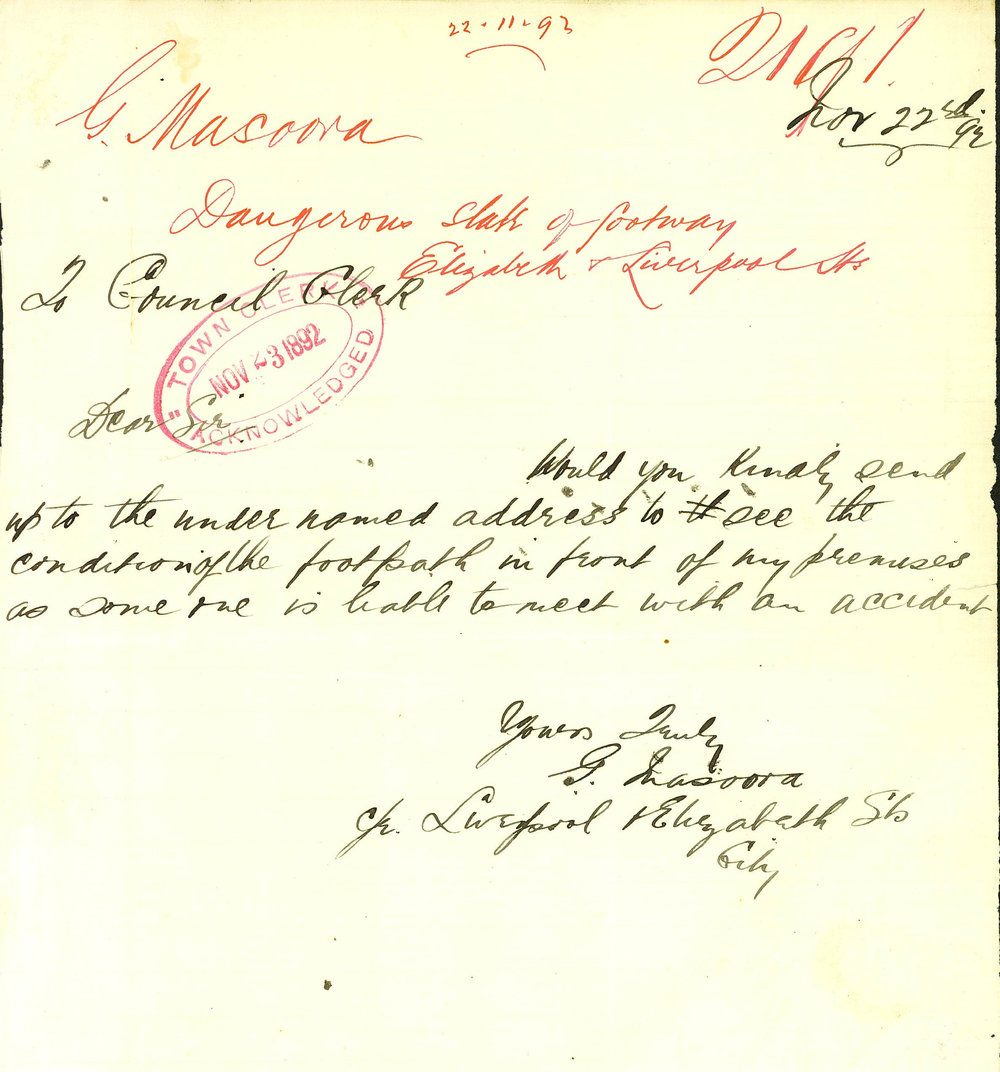 22-11-92
G. Masoora
Nov 22nd. 92
Dangerous state of footway
Elizabeth & Liverpool Sts
To Council Clerk
"TOWN CLERK'S
NOV 23 1892
ACKNOWLEDGED
Dear Sir
Would you Kindly send
up to the under named address to see the
condition of the footpath in front of my premises
as some one is liable to meet with an accident
Yours Truly
G. Masoora
c/r. Liverpool & Elizabeth Sts
City